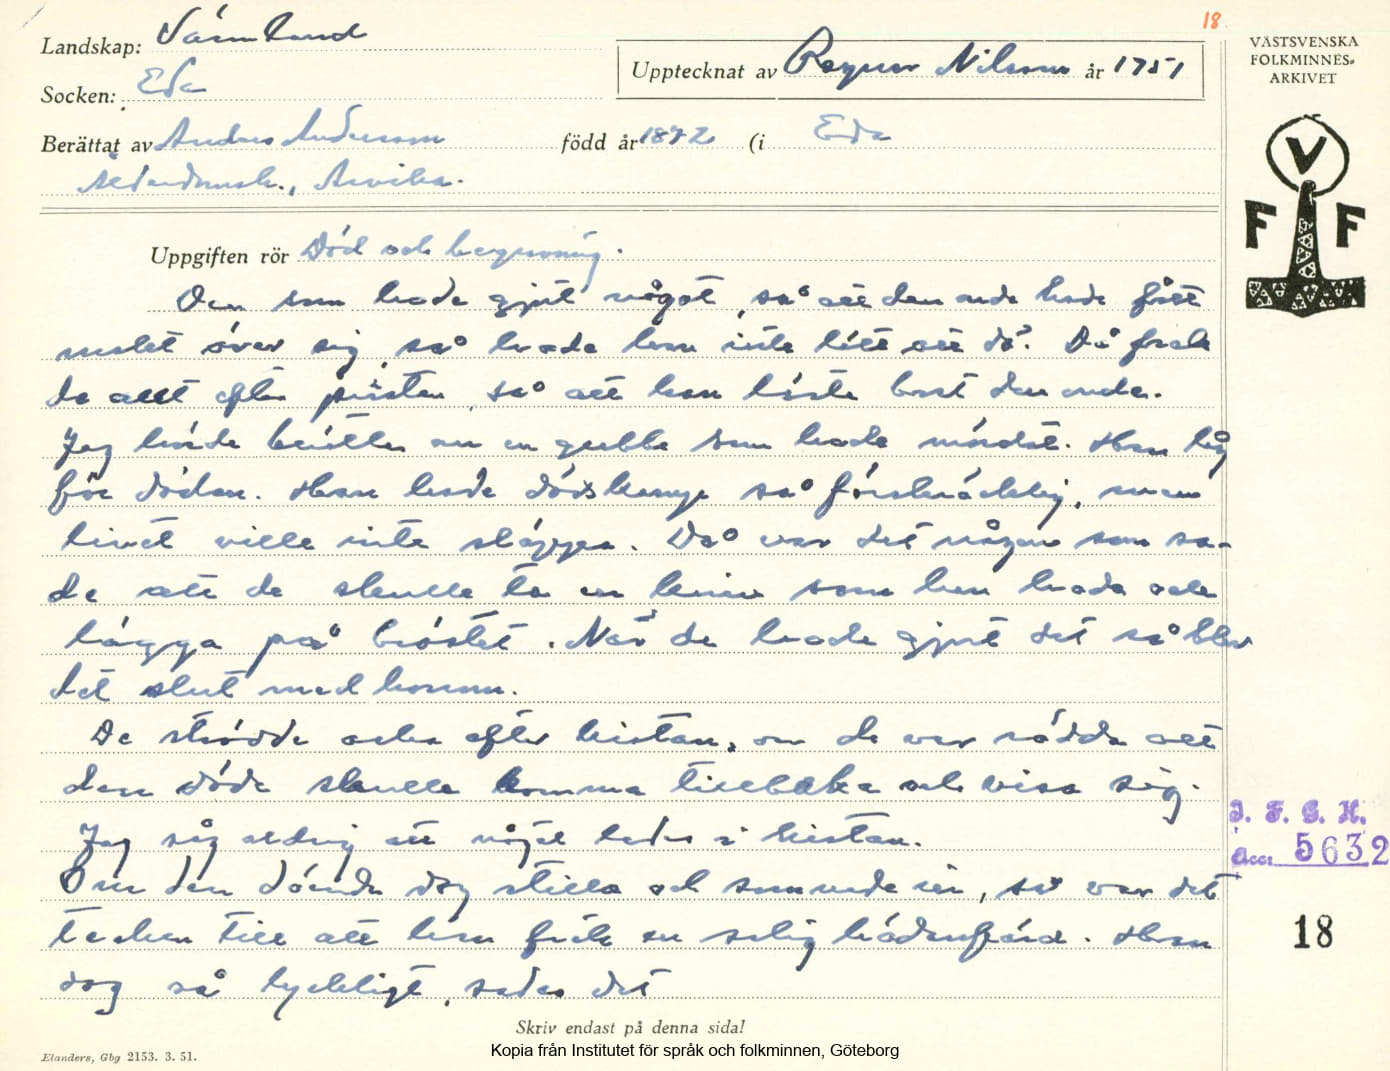 18
Landskap: Värmland
Socken: Eda
Upptecknat av Ragnar Nilsson år 1951
VÄSTSVENSKA
FOLKMINNES-
ARKIVET
Berättat av Anders Andersson född år 1872 (i Eda
Ålderdomsh., Arvika.
V
F F
Uppgiften rör Död och begravning.
Den som hade gjort något, så att den onde hade fått
makt över sig, så hade han inte lätt att dö. Då fick
de allt efter prästen, så att han läste bort den onde.
Jag hörde berättas om en gubbe som hade mördat. Han låg
för döden. Han hade dödskamp så förskräcklig, men
livet ville inte släppa. Då var det någon som sa-
de att de skulle ta en kniv som han hade och
lägga på bröstet. När de hade gjort det så blev
det slut med honom.
De strödde aska efter kistan, om de var rädda att
den döde skulle komma tillbaka och visa sig.
Jag såg aldrig att något lades i kistan.
Om den döende dog stilla och somnade in, så var det
tecken till att han fick en salig hädanfärd. Han
dog så lyckligt, sades det
I. F. G. H.
Acc. 5632
18
Skriv endast på denna sida!
Elanders, Gbg 2153. 3. 51.
Kopia från Institutet för språk och folkminnen, Göteborg